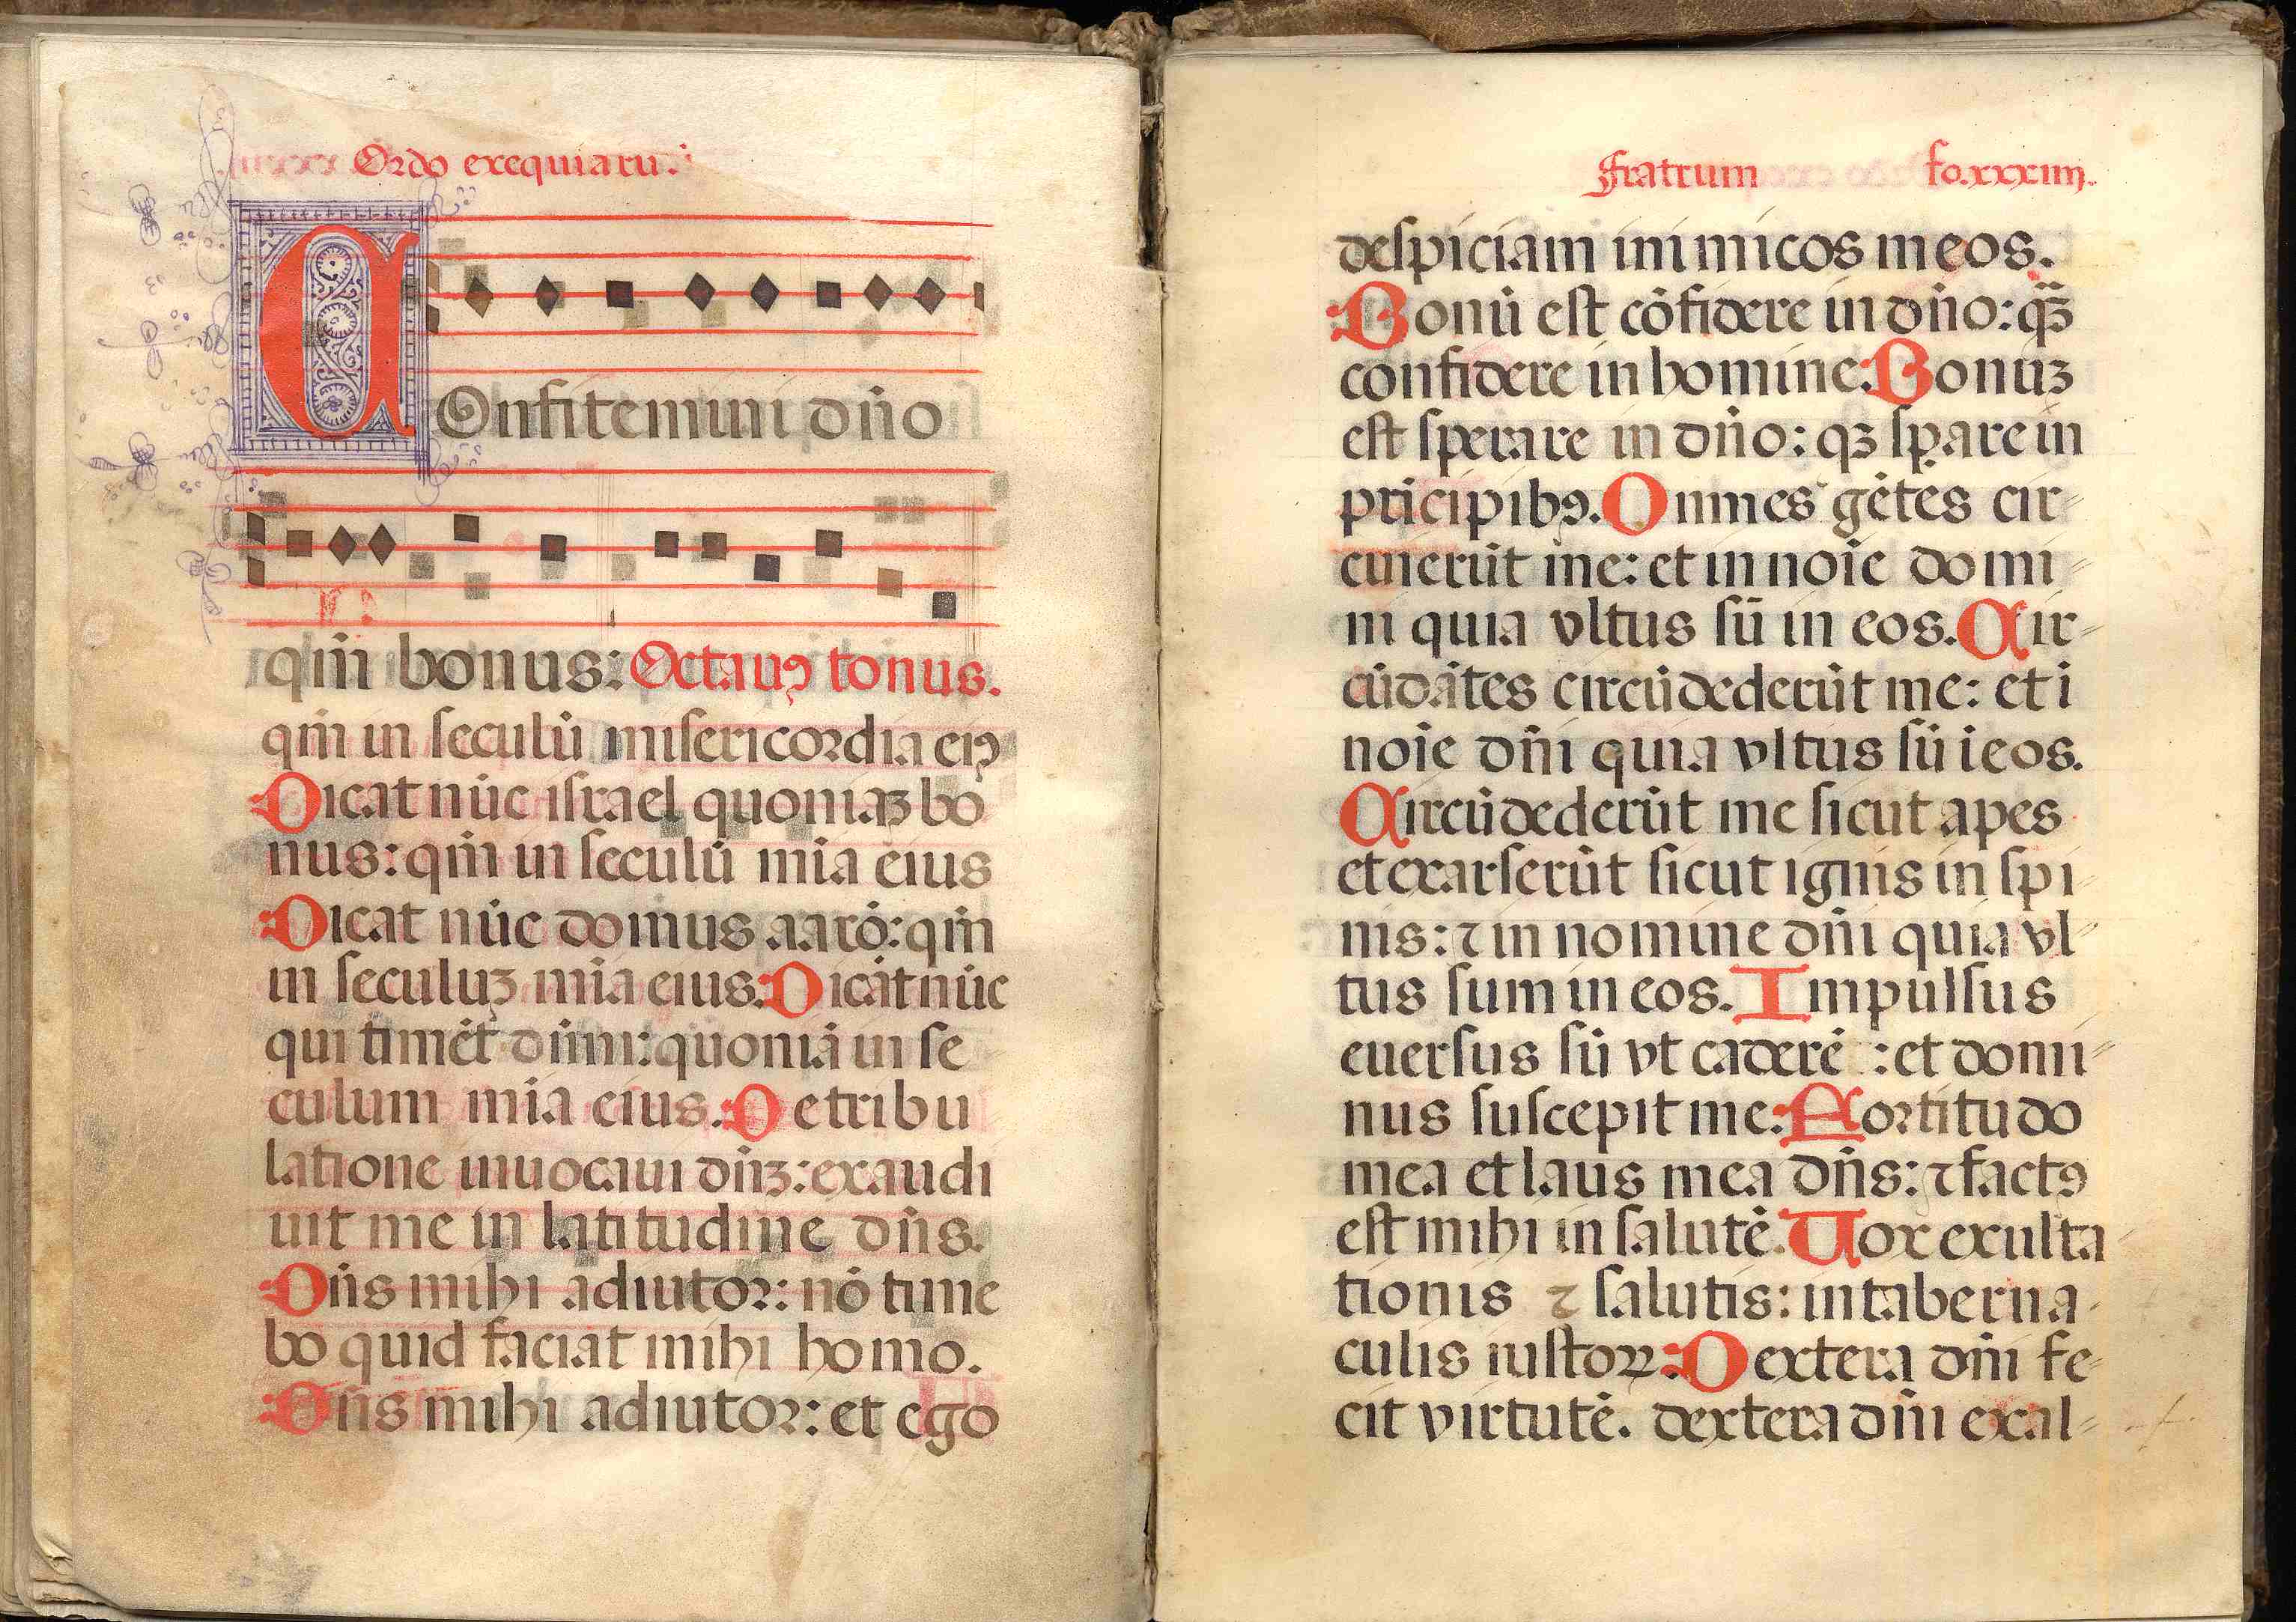 Ordo exequiarū.
COnfitemini dño
qm̄ bonus: Octauꝰ tonus.
qm̄ in ſeculū miſericordia eiꝰ
Dicat nūc iſrael quoniaꝫ bo
nus: qm̄ in ſeculū mīa eius
Dicat nūc domus aarō: qm̄
in ſeculuꝫ mīa eius. Dicāt nūc
qui timēt dūm: quoniā in ſe
culum mīa eius. De tribu
latione inuocaui dn̄ꝫ: exaudi
uit me in latitudine dn̄s.
Dn̄s mihi adiutor: nō time
bo quid faciat mihi homo.
Dn̄s mihi adiutor: et ego
Fratrum fo.xxxiiij.
deſpiciam inimicos meos.
Bonū eſt cōfidere in dn̄o: qꝫ̄
confidere in homine. Bonuꝫ
eſt ſperare in dn̄o: qꝫ ſꝑare in
prīcipibꝰ. Omnes gētes cir-
cuierūt me: et in noīe domi-
ni quia vltus ſū in eos. Cir-
cūdātes circūdederūt me: et ī
noīe dn̄i quia vltus ſū ī eos.
Circūdederūt me ſicut apes
et exarſerūt ſicut ignis in ſpi-
nis: ⁊ in nomine dn̄i quia vl-
tus ſum in eos. Impulſus
euerſus ſū vt caderē : et domi-
nus ſuſcepit me. Fortitudo
mea et laus mea dn̄s: ⁊ factꝰ
eſt mihi in ſalutē. Vox exulta-
tionis ⁊ ſalutis: in taberna-
culis iuſtoꝝ. Dextera dn̄i fe-
cit virtutē. dextera dn̄i exal-